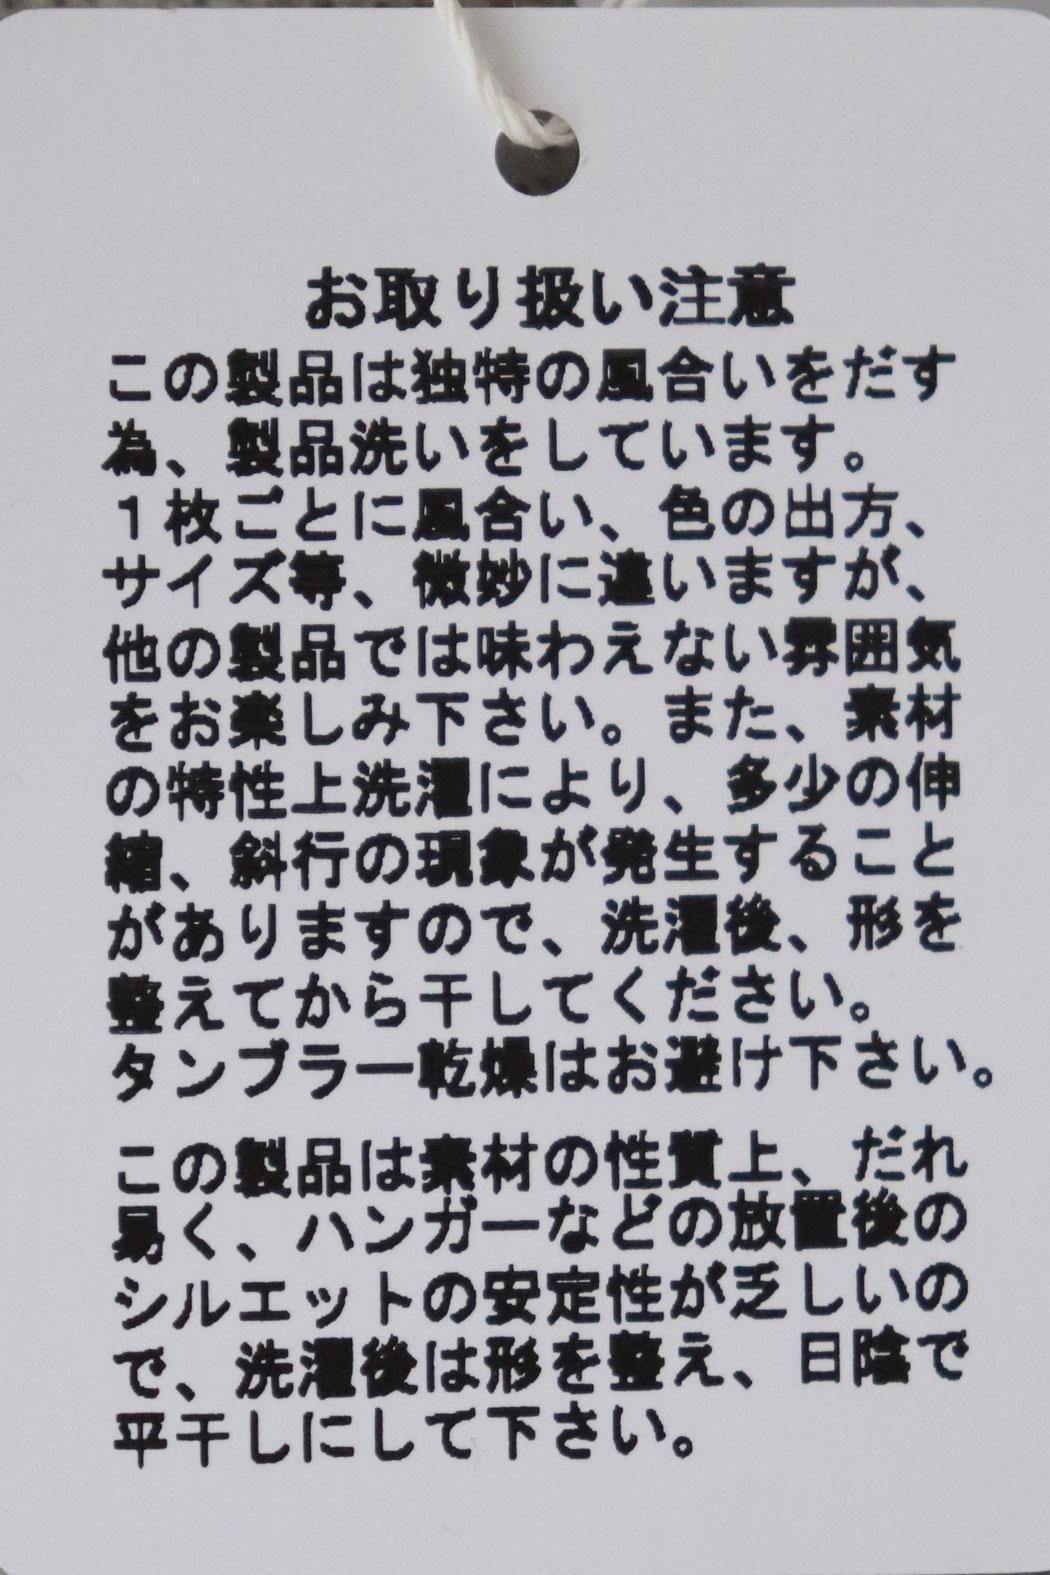 お取り扱い注意
この製品は独特の風合いをだす
為、製品洗いをしています。
１枚ごとに風合い、色の出方、
サイズ等、微妙に違いますが、
他の製品では味わえない雰囲気
をお楽しみ下さい。また、素材
の特性上洗濯により、多少の伸
縮、斜行の現象が発生すること
がありますので、洗濯後、形を
整えてから干してください。
タンブラー乾燥はお避け下さい。
この製品は素材の性質上、だれ
易く、ハンガーなどの放置後の
シルエットの安定性が乏しいの
で、洗濯後は形を整え、日陰で
平干しにして下さい。